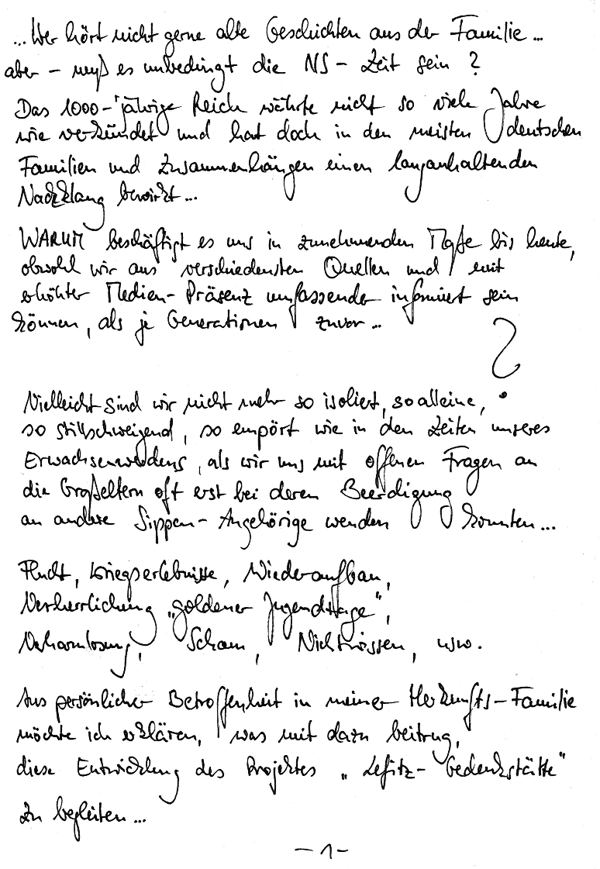 ... Wer hört nicht gerne alte Geschichten aus der Familie...
aber – muß es unbedingt die NS – Zeit sein ?
Das 1000-jährige Reich währte nicht so viele Jahre
wie verkündet und hat doch in den meisten deutschen
Familien und Zusammenhängen einen langanhaltenden
Nachklang bewirkt...
WARUM beschäftigt es uns in zunehmenden Maße bis heute,
obwohl wir aus verschiedensten Quellen und mit
erhöhter Medien-Präsenz umfassender informiert sein
können, als je Generationen zuvor...
?
Vielleicht sind wir nicht mehr so isoliert, so alleine,
so stillschweigend, so empört wie in den Zeiten unseres
Erwachsenwerdens, als wir uns mit offenen Fragen an
die Großeltern oft erst bei deren Beerdigung
an andere Sippen-Angehörige wenden konnten...
Flucht, Kriegserlebnisse, Wiederaufbau,
Verherrlichung „goldener Jugendtage",
Verharmlosung, Scham, Nichtwissen, usw.
Aus persönlicher Betroffenheit in meiner Herkunfts-Familie
möchte ich erklären, was mit dazu beitrug,
diese Entwicklung des Projektes „Lefitz-Gedenkstätte"
zu begleiten...
– 1 –